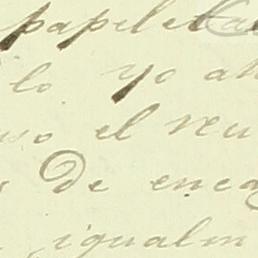 papeleta
lo yo an
so el reu
De enca
igualm